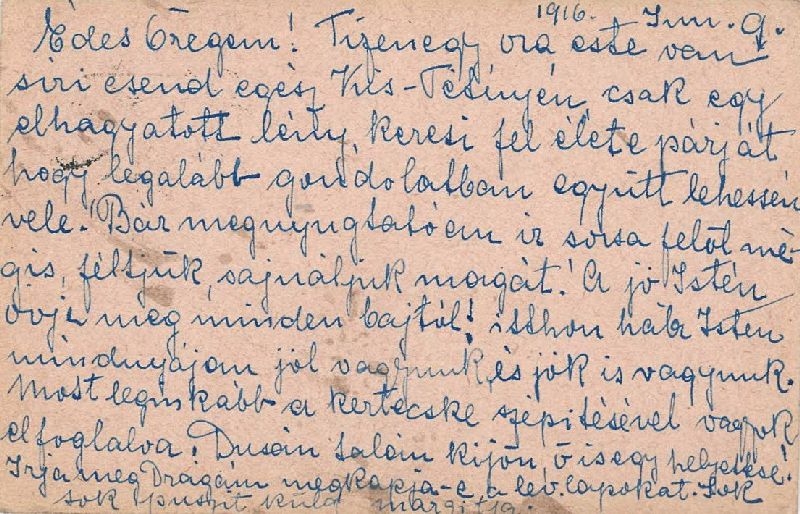 1916. Jun. 9.
Édes Öregem! Tizenegy óra este van
siri csend egész Kis-Tétényén, csak egy
elhagyatott lény, keresi fel élete párját
hogy legalább gondolatban együtt lehessen
vele. Bár megnyugtatóan ir sorsa felöl mé-
gis, féltjük, sajnáljuk magát! A jó Istén
óvja meg minden bajtól! itthon hála Isten
mindnyájan jól vagyunk, és jók is vagyunk.
Most leginkább a kertecske szépitésével vagyok
elfoglalva. Dusán talán kijön, ö is egy
Irja meg Drágám megkapja-e a lev.lapokat. Sok
sok puszit küld